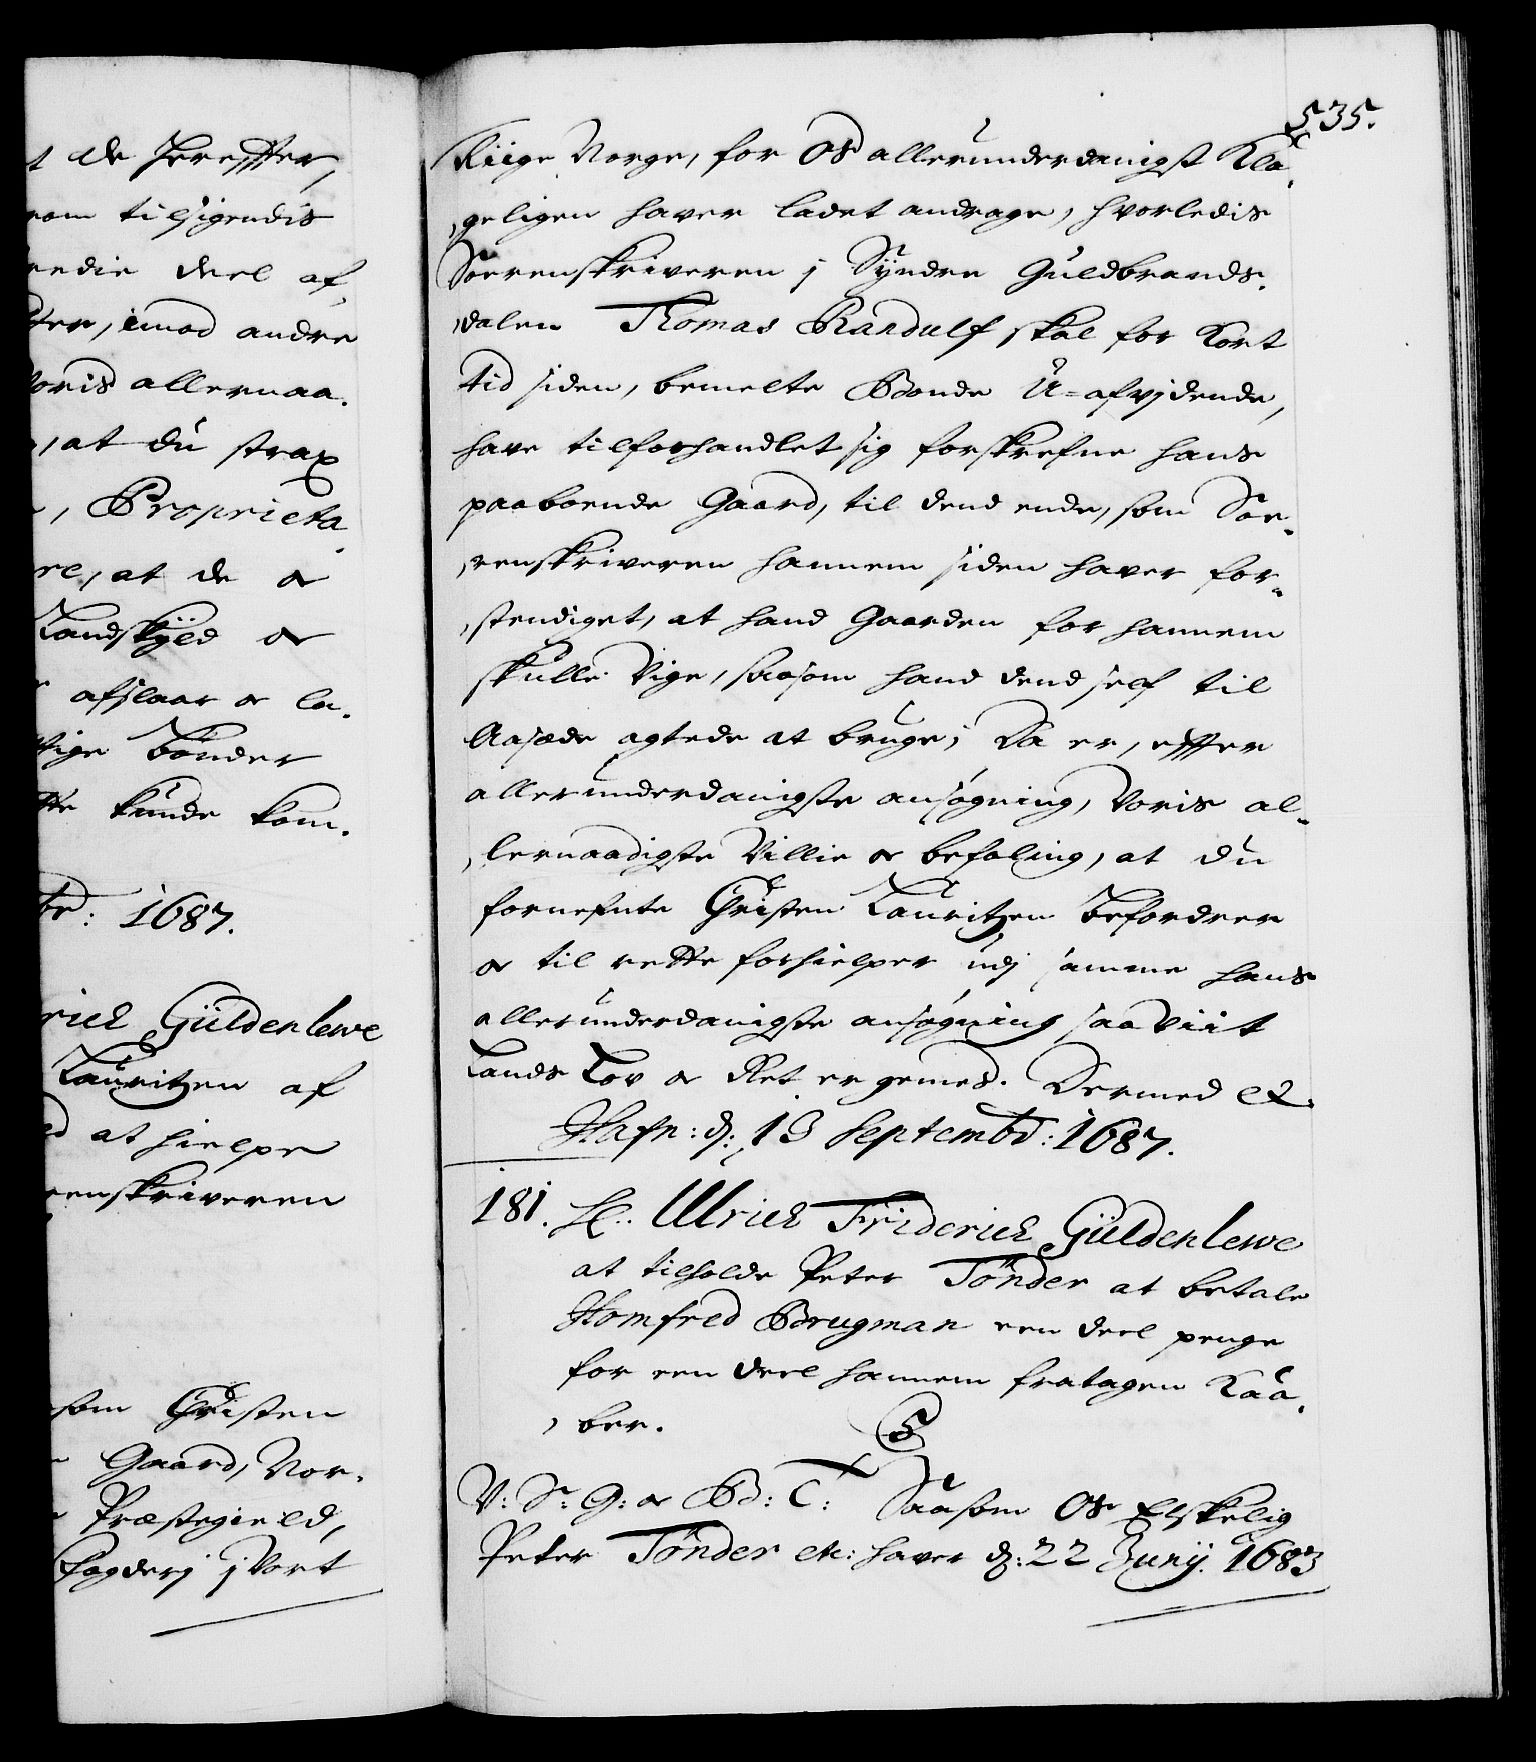 t de Hereffter,
nom tilsigendis
redie deel af,
tter, imod andre
Voris allernaa,
, at du strax
, Proprieta
re, at de or
Landskÿld or
afslaar or la,
ttige Bönder
tte kunde kom,
br: 1687.
rich Güldenlewe
Lauritzen af
d at hielpe
renskriveren
som Christen
Gaard, Nor,
Præstegield,
fogderj j Vort
535.
Riige Norge, for Os allerunderdanigst Kla,
,geligen haver ladet andrage, hvorledis
Sorenskriveren j Syndre Guldbrands,
,dalen Thomas Randulf skal for kort
tid siden, bemelte Bonde U-afvidende,
have tilforhandlet sig forskrefne hans
paaboende Gaard, til dend ende, som Sor,
,renskriveren hannem siden haver for,
,stendiget, at hand Gaarden for hannem
skulle Vige, saasom hand dend self til
Aasæde agtede at bruge; Da er, effter
allerunderdanigste ansøgning, Voris al,
,lernaadigste Villie or befaling, at du
fornefnte Christen Lauritzen befordrer
or til rette forhielper udj samme hans
allerunderdanigste ansøgning saa Viit
Lands Lov or Ret er gemes. Dermed etc.
Hafn: d: 13 Septembr: 1687.
181. H: Ulrich Friderich Güldenlewe
at tilholde Peter Tønder at betale
Homfred Brugman een deel penge
for een deel hannem fratagen Kaa,
,ber.
V: S: G: or Bd: C: Saasom Os Elskelig
Peter Tønder etc: haver d: 22 Junij. 1683